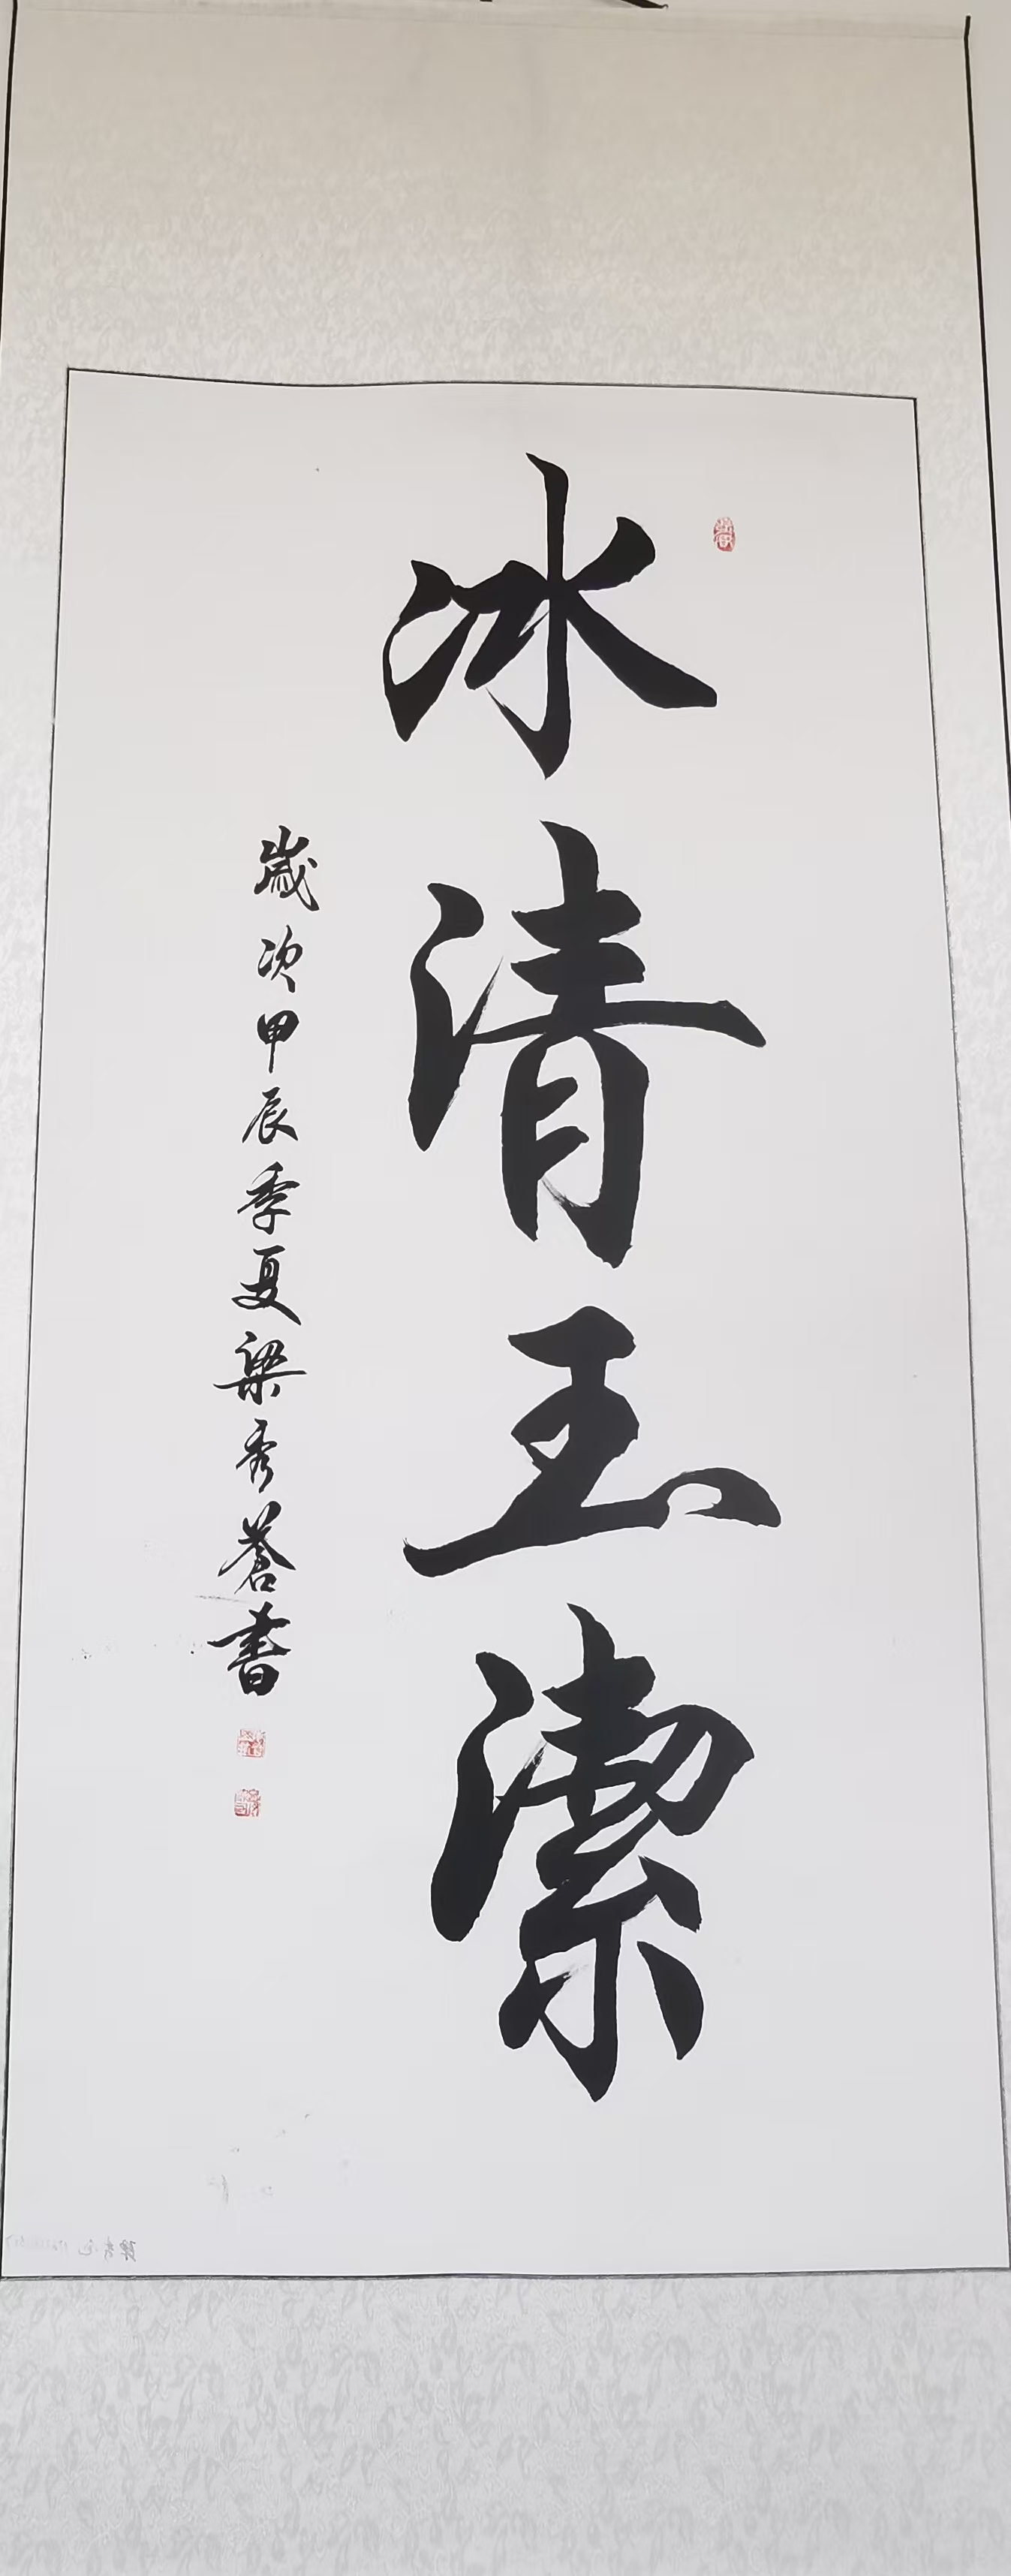 冰清玉潔
歲次甲辰季夏梁秀蒼書